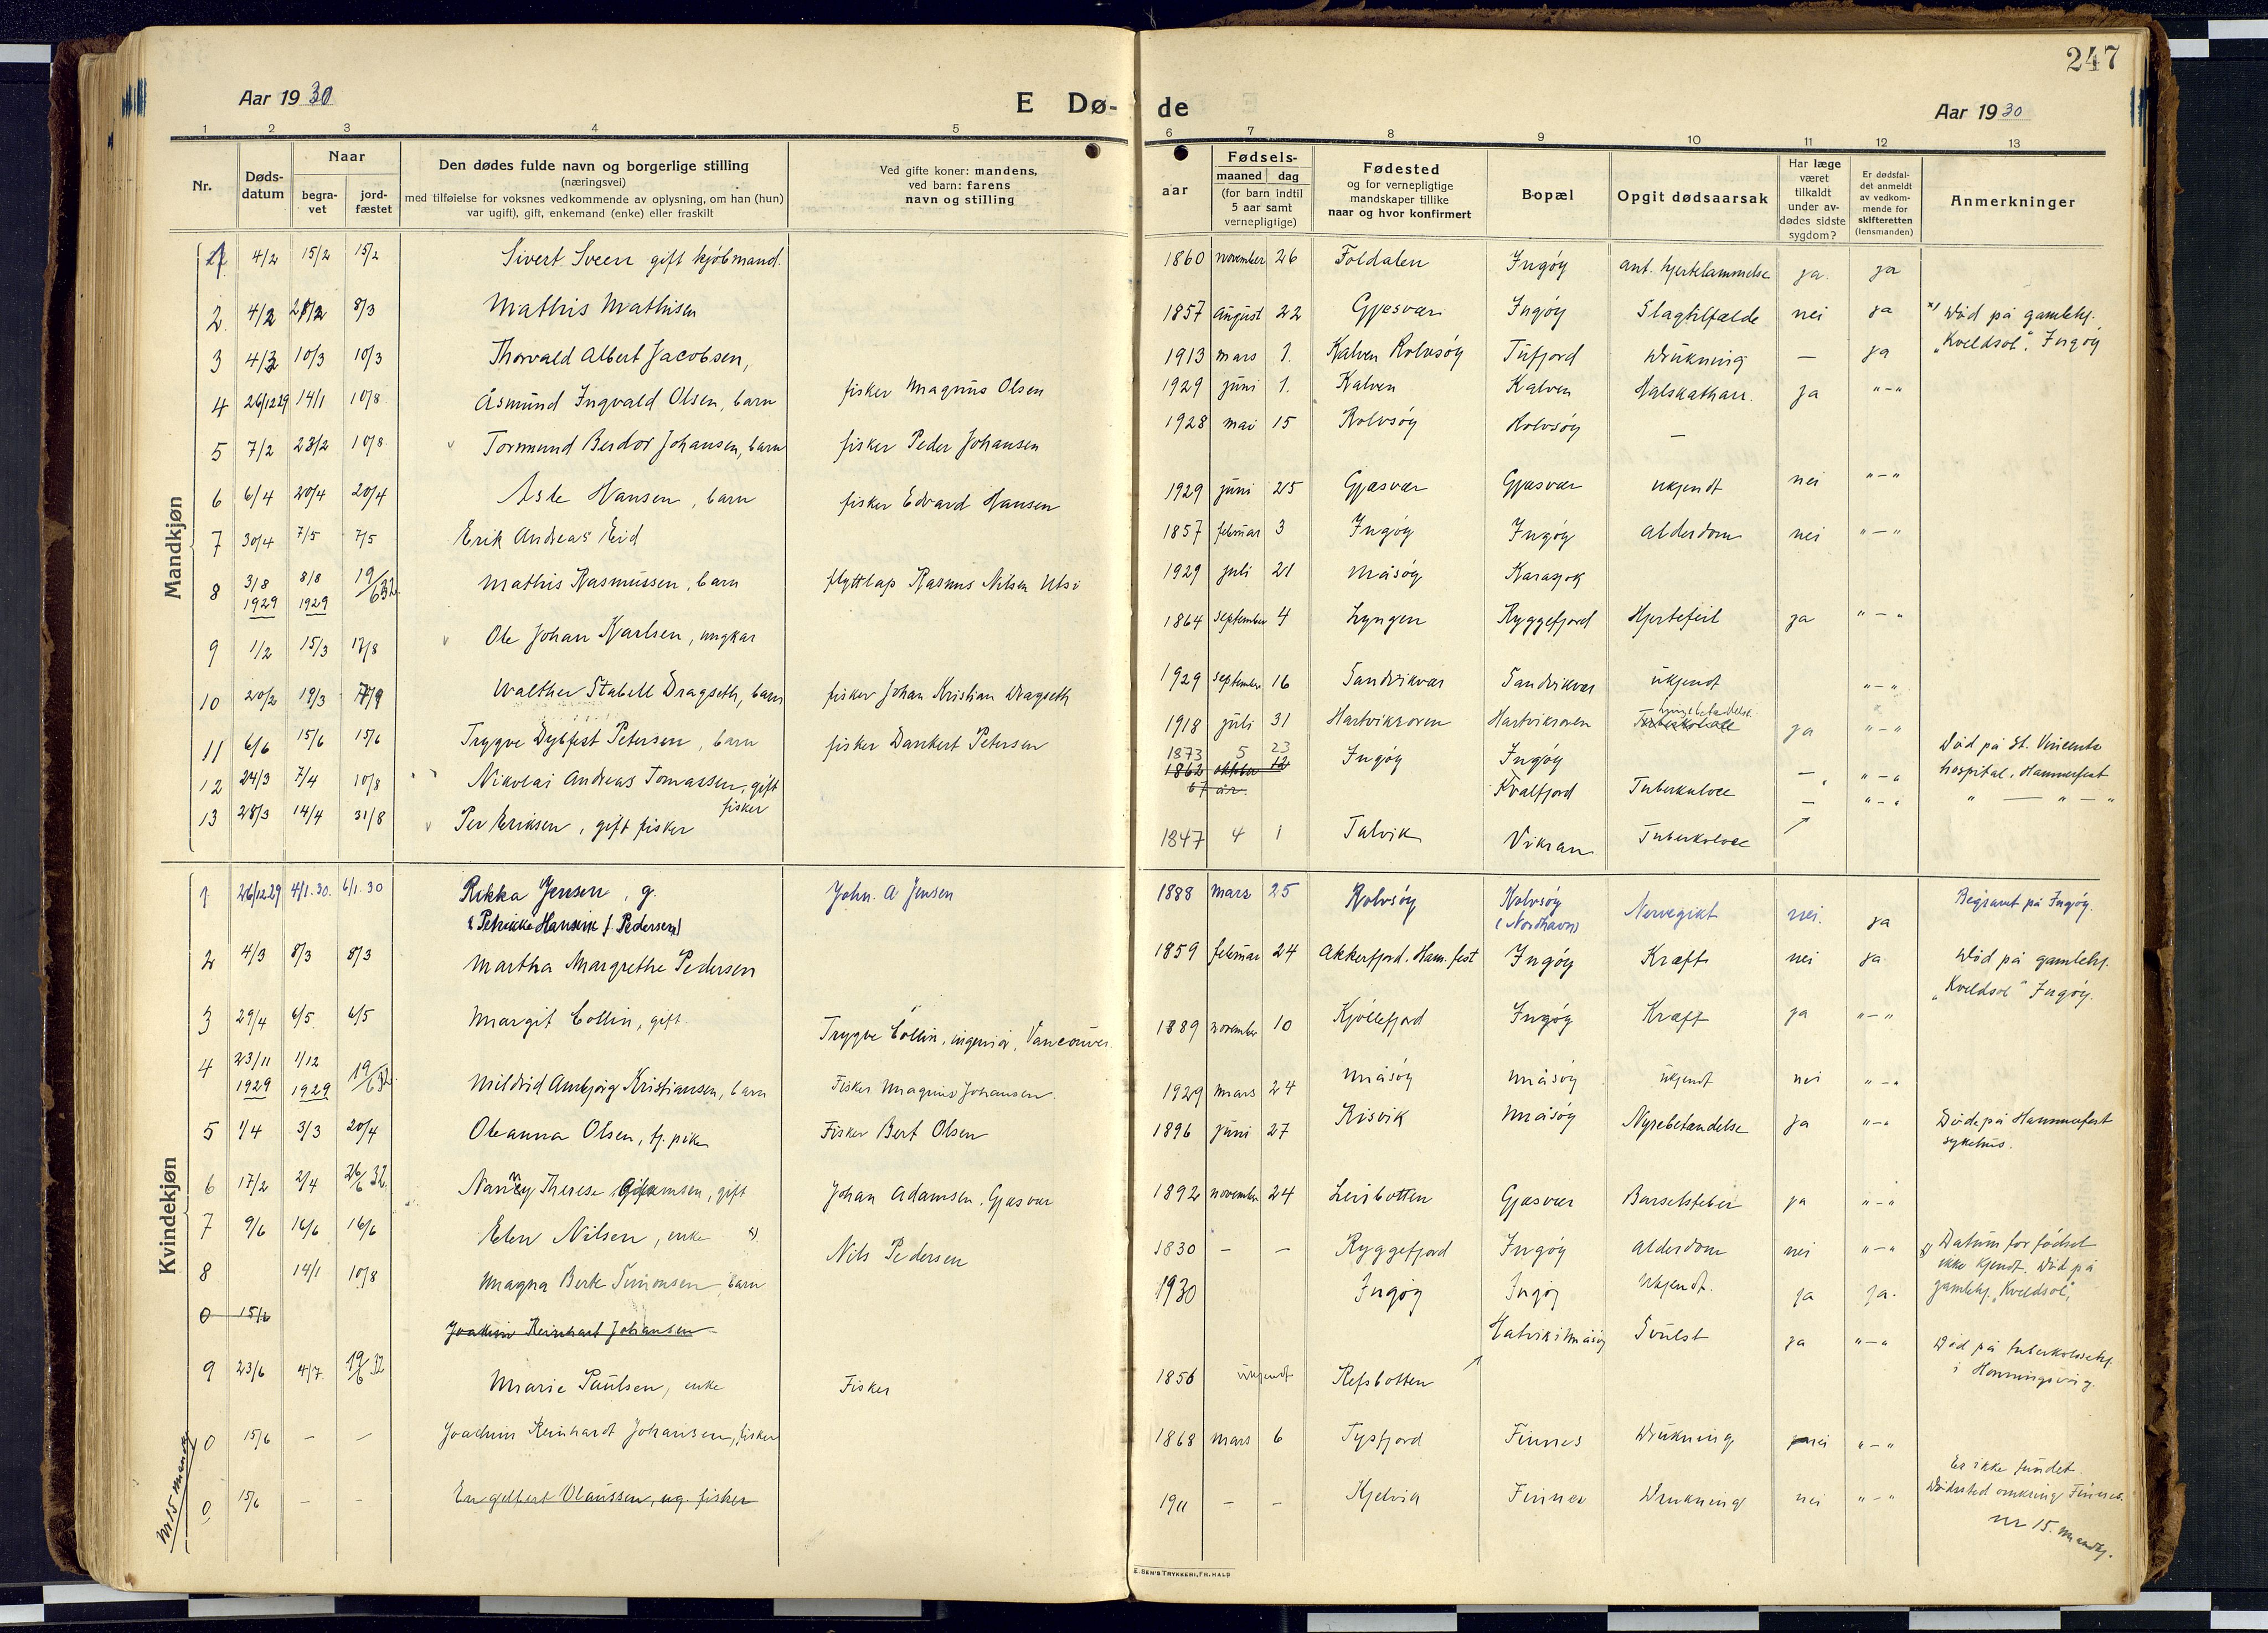 247
Aar 1930
E Dø-
de
Aar 1930
1 2 3 4 5 6 7 8 9 10 11 12 13
Nr.
Døds-
datum
Naar
begra-
vet
jord-
fæstet
Den dødes fulde navn og borgerlige stilling
(næringsvei)
med tilføielse for voksnes vedkommende av oplysning, om han (hun)
var ugift), gift, enkemand (enke) eller fraskilt
Ved gifte koner: mandens,
ved barn: farens
navn og stilling
aar
Fødsels-
maaned dag
(for barn indtil
5 aar samt
vernepligtige)
Fødested
og for vernepligtige
mandskaper tillike
naar og hvor konfirmert
Bopæl
Opgit dødsaarsak
Har læge
været
tilkaldt
under av-
dødes sidste
sygdom?
Er dødsfal-
det anmeldt
av vedkom-
mende for
skifteretten
(lensmanden)
Anmerkninger
Mandkjøn
1 4/2 15/2 15/2 Sivert Sveen gift kjøbmand. 1860 november 26 Foldalen Ingøy ant. hjertelammelse ja. ja
2. 4/2 28/2 8/3 Mathis Mathisen 1857 august 22 Gjesvær Ingøy Slagtilfælde nei ja x) Død på gamlehj.
"Kveldsol", Ingøy
3 4/3 10/3 10/3 Thorvald Albert Jacobsen, 1913 mars 1. Kalven Rolvsøy Tufjord Drukning — ja
4 26/12 29 14/1 10/8 Åsmund Ingvald Olsen, barn fisker Magnus Olsen 1929 juni 1. Kalven Kalven Halskatharr. ja "—"
5 7/2 23/2 10/8 Tormund Berdor Johansen, barn fisker Peder Johansen 1928 mai 15 Rolvsøy Rolvsøy —
6 6/4 20/4 20/4 Asle Hansen, barn fisker Edvard Hansen 1929 juni 25 Gjesvær Gjesvær ukjendt nei "—"
7 30/4 7/5 7/5 Erik Andreas Eid 1857 februar 3 Ingøy Ingøy Alderdom nei "—"
8 3/8 1929 8/8 1929 19/6 32. Mathis Rasmussen, barn flyttlap Rasmus Nilsen Utsi 1929 juli 21 Måsøy Karasjok
9 1/2 15/3 17/8 Ole Johan Karlsen, ungkar 1864 september 4 Lyngen Ryggefjord Hjertefeil ja "—"
10 20/2 19/3 7/9 Walther Stabell Dragseth, barn fisker Johan Kristian Dragseth 1929 september 16 Sandvikvær Sandvikvær ukjendt "—"
11 6/6 15/6 15/6 Trygve Dybfest Petersen, barn fisker Dankert Petersen 1918 juli 31 Hartviksoren Hartviksoren Tuberkolose ja "—"
12 24/3 7/4 10/8 Nikolai Andreas Tomassen, gift
fisker 1873 5 23
1862 oktober 12
67 år. Ingøy Ingøy — "—" Død på St. Vincents
hospital, Hammerfest
13 28/3 14/4 31/8 Per Eriksen, gift fisker Kvalfjord Tuberkulose — "—" " — " — "
1847 4 1 Talvik Vikran Tuberkolose
Kvindekjøn
1 26/12 29 4/1.30. 6/1.30 Rikka Jensen, g.
(Petrikke Hansine f. Pedersen) John. A Jensen 1888 mars 25 Rolvsøy Rolvsøy
(Nordhavn) Nervegikt nei. ja Begravet på Ingøy.
2 4/3 8/3 8/3 Martha Margrethe Pedersen 1859 februar 24 Akkerfjord. Ham.fest Ingøy Kræft nei ja Død på gamlehj.
"Kveldsol" Ingøy.
3 29/4 6/5 6/5 Margit Collin, gift Trygve Collin, ingeniør, Vancouver. 1889 november 10 Kjøllefjord Ingøy Kræft ja "—"
4 23/11 1929 1/12 1929 19/6 32. Mildrid Ambjørg Kristiansen, barn Fisker Magnus Johansen. 1929 mars 24 Måsøy Måsøy ukjendt nei "—"
5 1/4 3/3 20/4 Oleanna Olsen, tj. pike Fisker Bert Olsen 1896 juni 27 Risvik Måsøy Nyrebetændelse ja "—" Døde på Hammerfest
sykehus.
6 17/2 2/4 26/6 32. Nanny Therese, gift Johan Adamsen, Gjesvær 1892 november 24 Leirbotten Gjesvær Barselsfeber ja "—"
7 9/6 16/6 16/6 Elen Nilsen, enke x) Nils Pedersen 1830 — — Ryggefjord Ingøy Alderdom nei "—" x) Datum for fødsel
ikke kjendt. Død på
gamlehj. "Kveldsol",
8 14/1 10/8 Magna Berte Simonsen, barn 1930 Ingøy Ingøy Ukjendt. ja ja.
0 15/6 Joachim Reinhart Johansen
9 23/6 4/7. 19/6 32 Marie Paulsen, enke Fisker 1856 ukjendt Refsbotten Hatvik i Måsøy Svulst ja "—" Død på tuberkolosehj.
i Honningsvåg.
0 15/6 — — Joachim Reinhardt Johansen, fisker 1868 mars 6 Tysfjord Finnes Drukning nei "—"
0 15/6 — — Engelbert Olaussen, ug. fisker 1911 — — Kjelvik Finnes Drukning nei "—" Er ikke fundet.
Dødssted omkring Finnes.
nr 15. mandkj.
Nr 15 mandkj
E. SEM'S TRYKKERI, FR.HALD